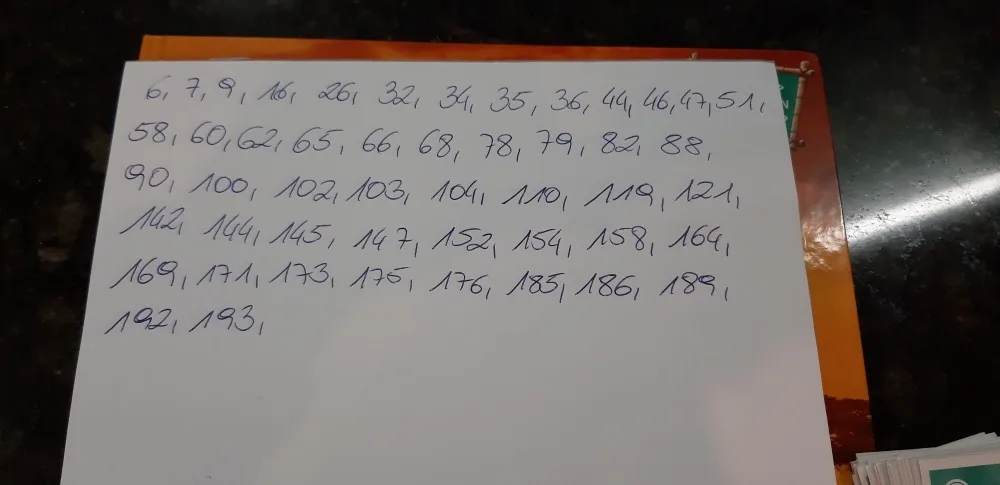 6, 7, 9, 16, 26, 32, 34, 35, 36, 44, 46, 47, 51,
58, 60, 62, 65, 66, 68, 78, 79, 82, 88,
90, 100, 102, 103, 104, 110, 119, 121,
142, 144, 145, 147, 152, 154, 158, 164,
169, 171, 173, 175, 176, 185, 186, 189,
192, 193,